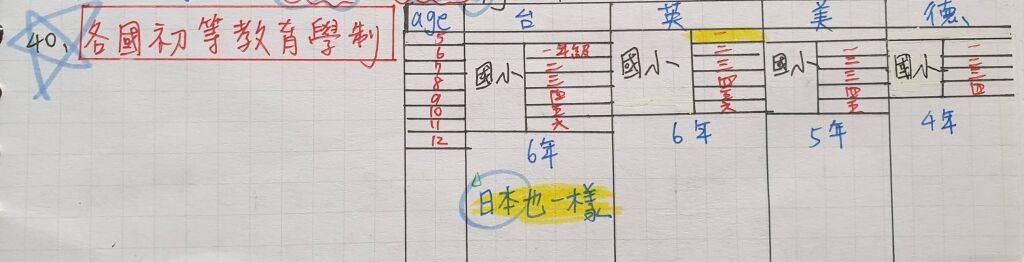 40、各國初等教育學制
age 台 英 美 德、
5 一
6 一年級 二 一 一
7 二 三 二 二
8 三 三 三 三
9 四 四 四 四
10 五 五 五
11 六 六
12
國小 國小 國小 國小
6年 6年 5年 4年
日本也一樣